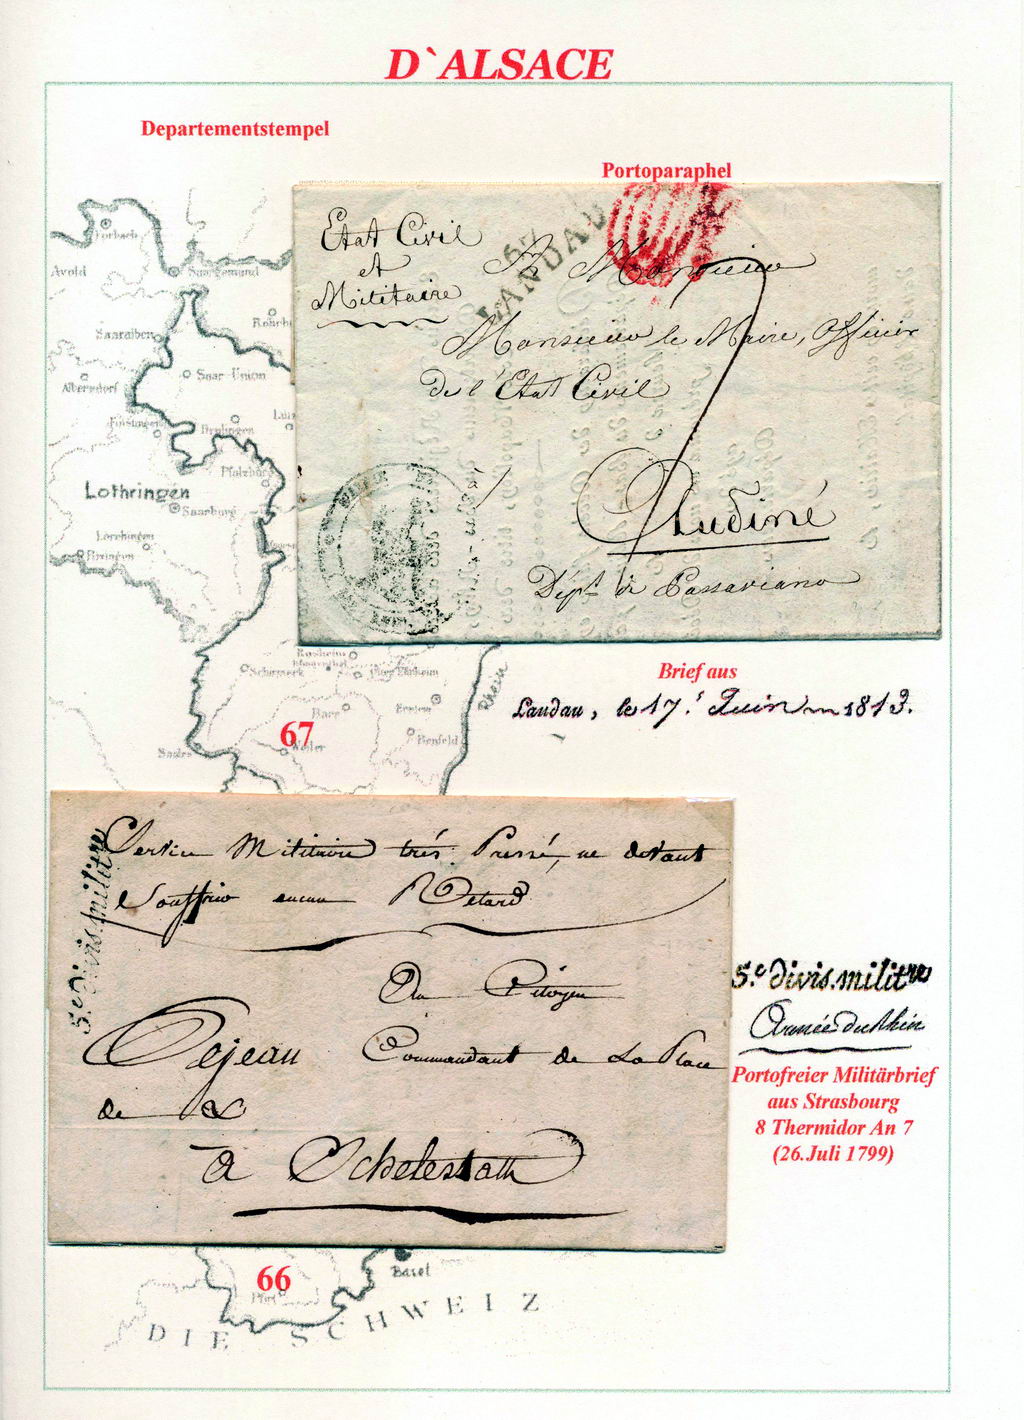 D`ALSACE
Departementstempel
Portoparaphel
Etat Civil
et
Militaire
67
LANDAU
A Monsieur
Monsieur le Maire, Officier
De l'Etat Civil
7
Audiné
Dépt. de Passariano
Forbach
Avold
Saargemünd
Saaralben
Rohrb
Albersdorf
Saar-Union
Finstingen
Drulingen
Lüt
Pfalzburg
Lothringen
Saarburg
Lorchingen
Rixingen
Rosheim
Schirmeck
Rhein
Barr
Erstein
Benfeld
Weiler
Saales
67
Brief aus
Landau, le 17. Juin 1813.
Service Militaire trés Pressé, ne devant
Souffrir aucun Retard
5.e divis. militre
Au Citoyen
Dejean Commandant de La Place
de
à Schelestatt
5.e divis. militre
Armée du Rhin
Portofreier Militärbrief
aus Strasbourg
8 Thermidor An 7
(26.Juli 1799)
66
Pfirt
Basel
DIE SCHWEIZ